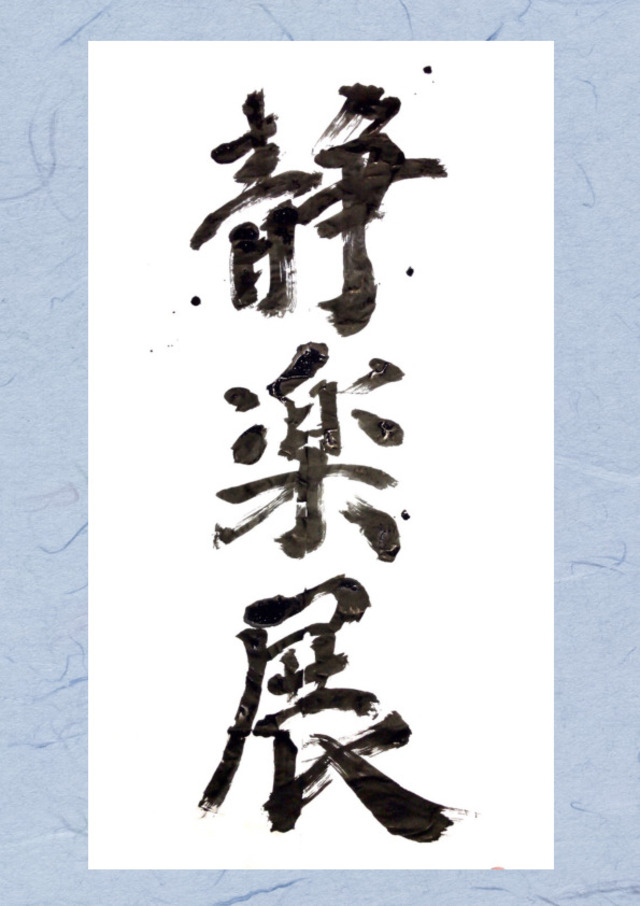 静楽展